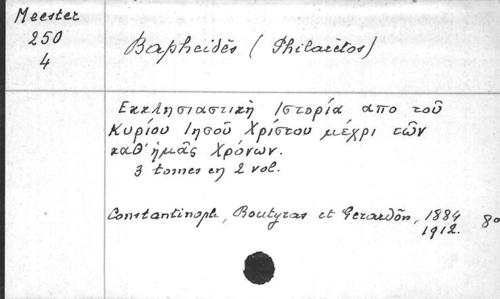 Meester
250
4
Bapheidès (Philarètos)
Εκκλησιαστικὴ Ιστορία απο τοῦ
Κυρίου Ιησοῦ Χρίστου μέχρι τῶν
καθ' ἡμᾶς Χρόνων.
3 tomes en 2 vol.
Constantinople, Boutyras et Gerardôn, 1884
1912. 8º